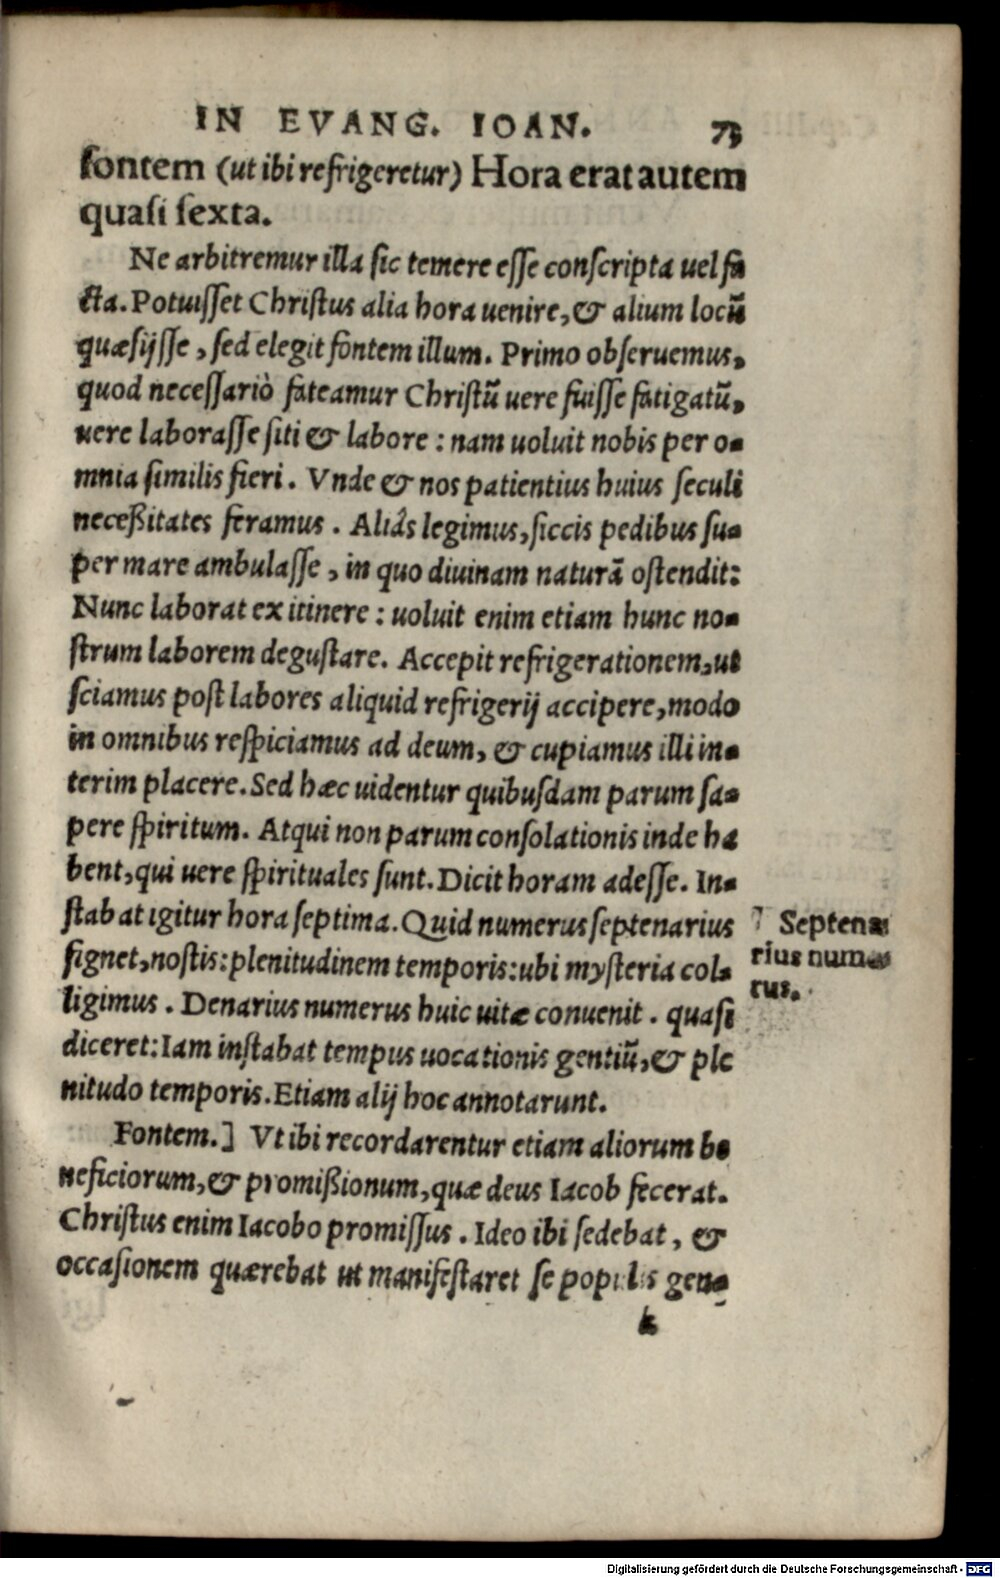 IN EVANG. IOAN. 73
fontem (ut ibi refrigeretur) Hora erat autem
quasi sexta.
Ne arbitremur illa sic temere esse conscripta uel fa
cta. Potuisset Christus alia hora uenire, & alium locũ
quæsijsse, sed elegit fontem illum. Primo obseruemus,
quod necessariò fateamur Christũ uere fuisse fatigatũ,
uere laborasse siti & labore: nam uoluit nobis per o-
mnia similis fieri. Vnde & nos patientius huius seculi
neceßitates feramus. Aliâs legimus, siccis pedibus su-
per mare ambulasse, in quo diuinam naturã ostendit:
Nunc laborat ex itinere: uoluit enim etiam hunc no-
strum laborem degustare. Accepit refrigerationem, ut
sciamus post labores aliquid refrigerij accipere, modo
in omnibus respiciamus ad deum, & cupiamus illi in-
terim placere. Sed hæc uidentur quibusdam parum sa-
pere spiritum. Atqui non parum consolationis inde ha
bent, qui uere spirituales sunt. Dicit horam adesse. In-
stabat igitur hora septima. Quid numerus septenarius
signet, nostis: plenitudinem temporis: ubi mysteria col-
ligimus. Denarius numerus huic uitæ conuenit. quasi
diceret: Iam instabat tempus uocationis gentiũ, & ple
nitudo temporis. Etiam alij hoc annotarunt.
Septena-
rius nume-
rus.
Fontem.] Vt ibi recordarentur etiam aliorum be
neficiorum, & promißionum, quæ deus Iacob fecerat.
Christus enim Iacobo promissus. Ideo ibi sedebat, &
occasionem quærebat ut manifestaret se populis gen-
k
Digitalisierung gefördert durch die Deutsche Forschungsgemeinschaft - DFG